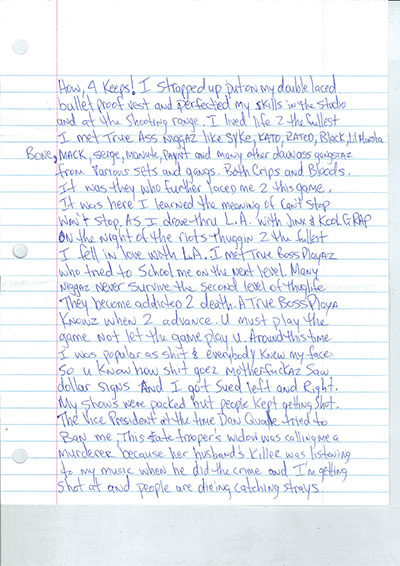 How, 4 Keeps! I strapped up put on my double laced
bullet proof vest and perfected my skills in the studio
and at the shooting range. I lived life 2 the fullest
I met True Ass Niggaz like Syke, KATO, RATED, Black, Lil Monsta
Bone, MACK, Serge, Monute, and many other down ass gangstaz
from various sets and gangs. Both Crips and Bloods.
It was they who further laced me 2 this game.
It was here I learned the meaning of Can't Stop
Won't Stop. As I drove thru L.A. with Jinx & Kool G RAP
ON the night of the riots thuggin 2 the fullest
I fell in love with L.A. I met True Boss PlayaZ
who tried to School me on the next level. Many
Niggaz never survive the second level of thuglife
They become addicted 2 death. A True Boss Playa
Knowz when 2 advance. U must play the
game Not let the game play u. Around this time
I was popular as shit & everybody knew my face
So u know how shit goez MotherfuckAz Saw
dollar signs And I got Sued left and Right.
My Shows were packed but people kept getting shot.
The Vice President at the time Dan Quayle tried to
Ban me. This State trooper's widow was calling me a
murderer because her husband's Killer was listening
to my music when he did the crime and I'm getting
shot at and people are dieing catching strays